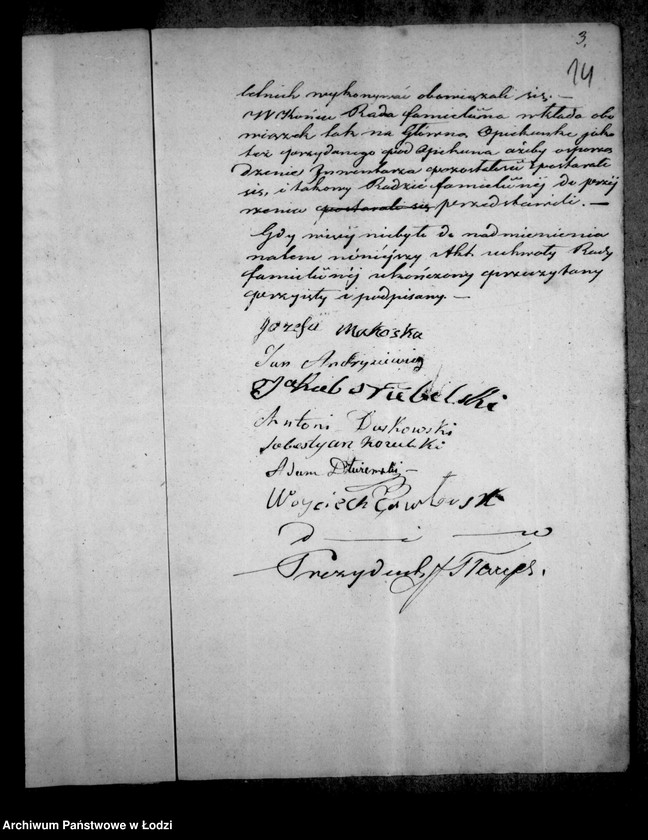 3.
14
letnich wykonywać obowiązali się. —
W Końcu Rada familiina wkłada obo
wiązek tak na Główną Opiekunkę jako
też przydanego pod Opiekuna ażeby o sporzą
dzenie Inwentarza pozostałości postarali
się, i takowy Radzie familiinéj do przéj
rzenia postarali się przedstawili. —
Gdy więcéj niebyło do nadmienienia
zatem niniéjszy Akt uchwały Rady
familiinéj ukończony przeczytany
przyjęty i podpisany. —
Jozefa Makoska
Jan Andrysiewicz
Jakub
Antoni Duskowski
Sebestyan
Adam
Woyciech
Prezydent
Archiwum Państwowe w Łodzi